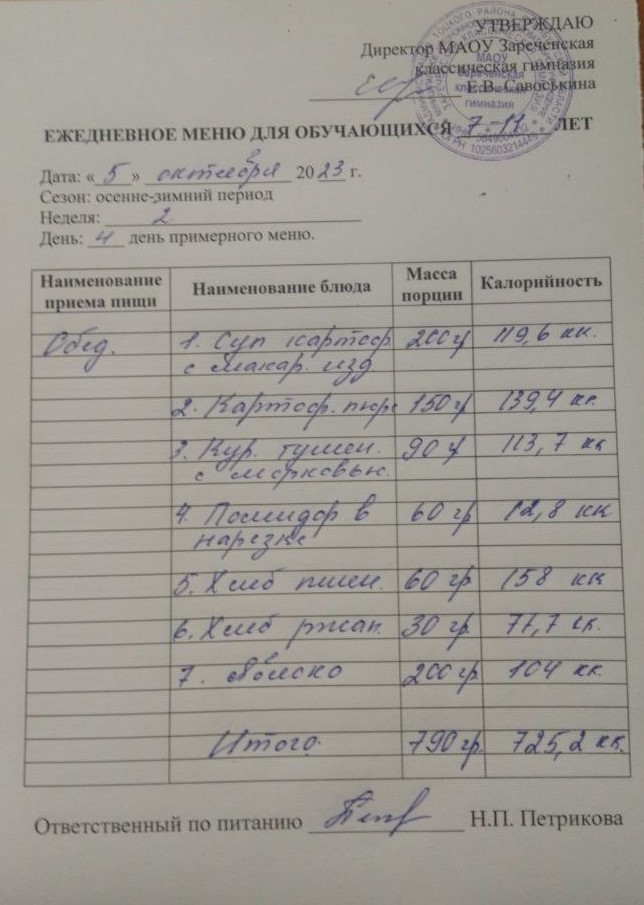 УТВЕРЖДАЮ
Директор МАОУ Зареченская
классическая гимназия
Е.В. Савоськина
МАОУ
Зареченская
классическая
гимназия
ЕЖЕДНЕВНОЕ МЕНЮ ДЛЯ ОБУЧАЮЩИХСЯ 7-11 ЛЕТ
Дата: «5» октября 2023 г.
Сезон: осенне-зимний период
Неделя: 2
День: 4 день примерного меню.
Наименование приема пищи Наименование блюда Масса порции Калорийность
Обед. 1. Суп картоф 200 г 119,6 кк.
с макар. изд
2. Картоф. пюре 150 г 139,4 кк.
3. Кур. тушен. 90 г 113,7 кк
с морковью.
4. Помидор в 60 гр 12,8 кк
нарезке
5. Хлеб пшен. 60 гр 158 кк
6. Хлеб ржан. 30 гр. 77,7 кк.
7. Яблоко 200 гр. 104 кк.
Итого. 790 гр. 725,2 кк.
Ответственный по питанию Н.П. Петрикова